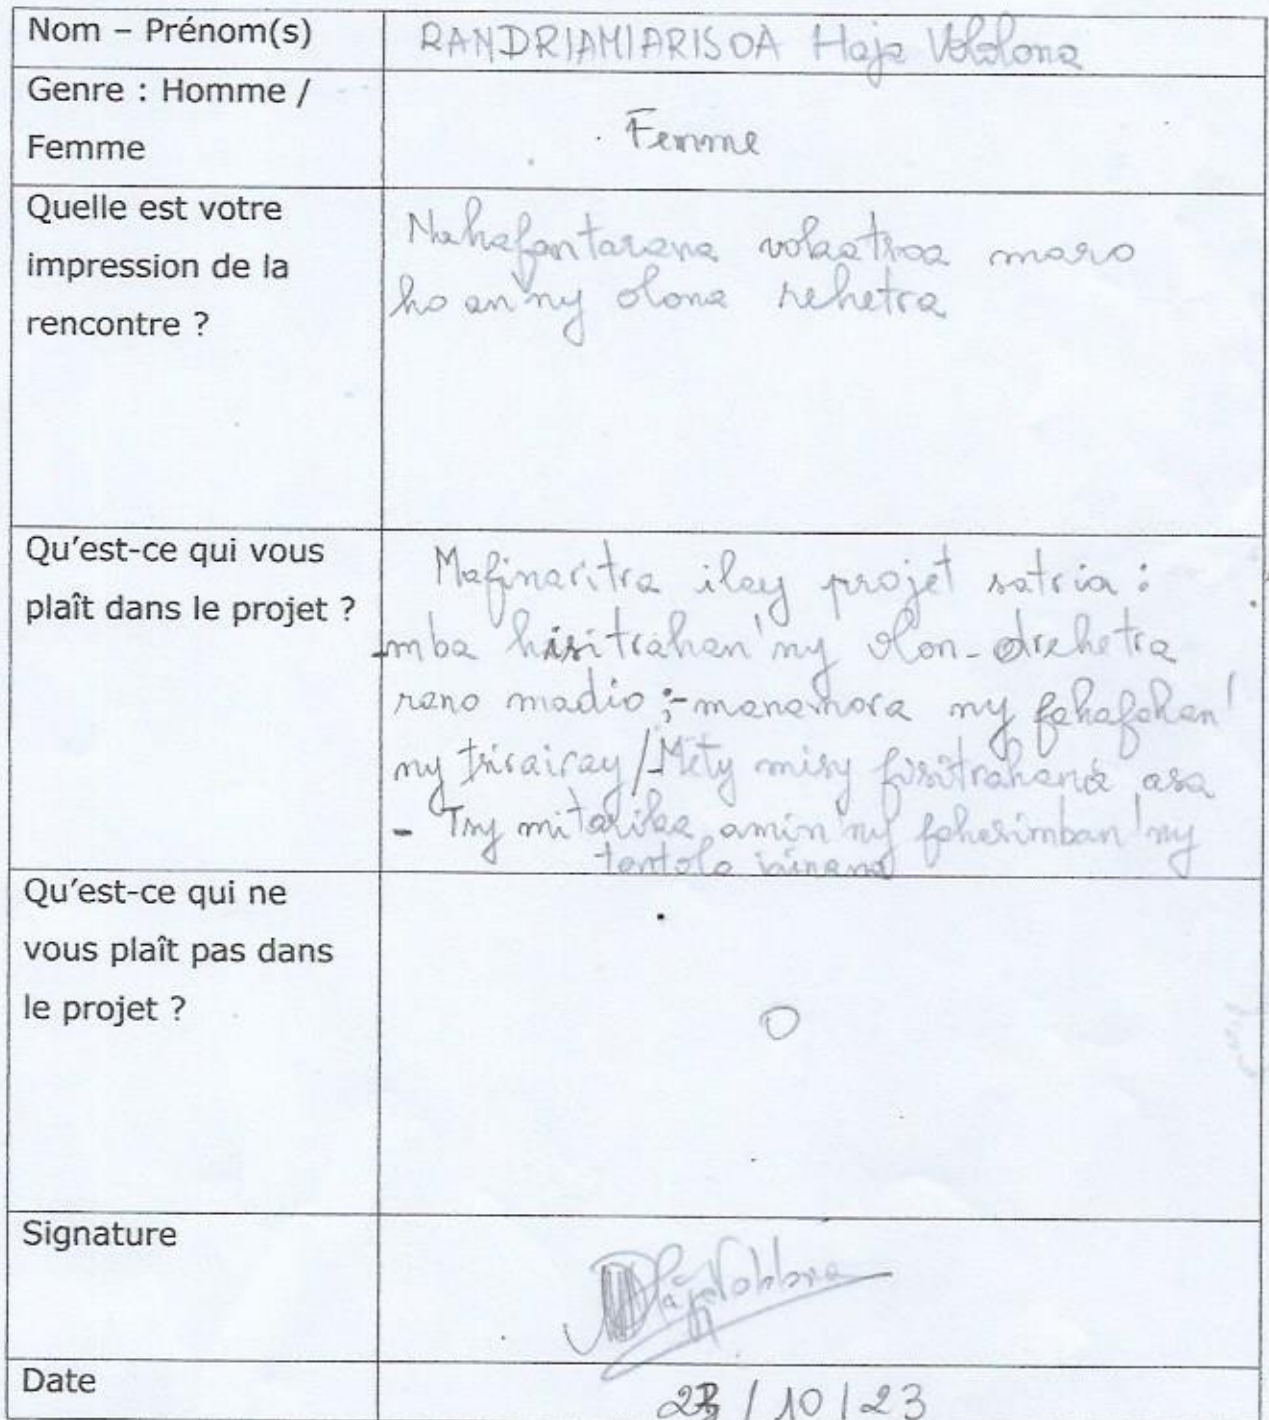 Nom – Prénom(s)
RANDRIAMIARISOA Haja Vololona
Genre : Homme /
Femme
Femme
Quelle est votre
impression de la
rencontre ?
Nahafantarana vokatsoa maro
ho an'ny olona rehetra
Qu'est-ce qui vous
plaît dans le projet ?
Mafinaritra iley projet satria :
-mba hisitrahan'ny olon-drehetra
rano madio ;-manamora ny fahafahan'
ny tsirairay /-Mety misy fisitrahana asa
- Tsy mitarika amin'ny faherimban'ny
tontolo iainana
Qu'est-ce qui ne
vous plaît pas dans
le projet ?
O
Signature
Haja Vololona
Date
/ 10 / 23